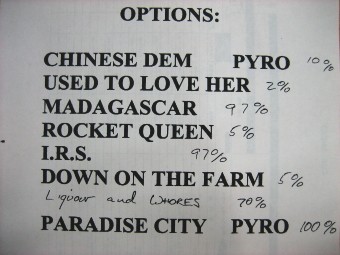 OPTIONS:
CHINESE DEM PYRO 10%
USED TO LOVE HER 2%
MADAGASCAR 97%
ROCKET QUEEN 5%
I.R.S. 97%
DOWN ON THE FARM 5%
Liquour and WHORES 70%
PARADISE CITY PYRO 100%